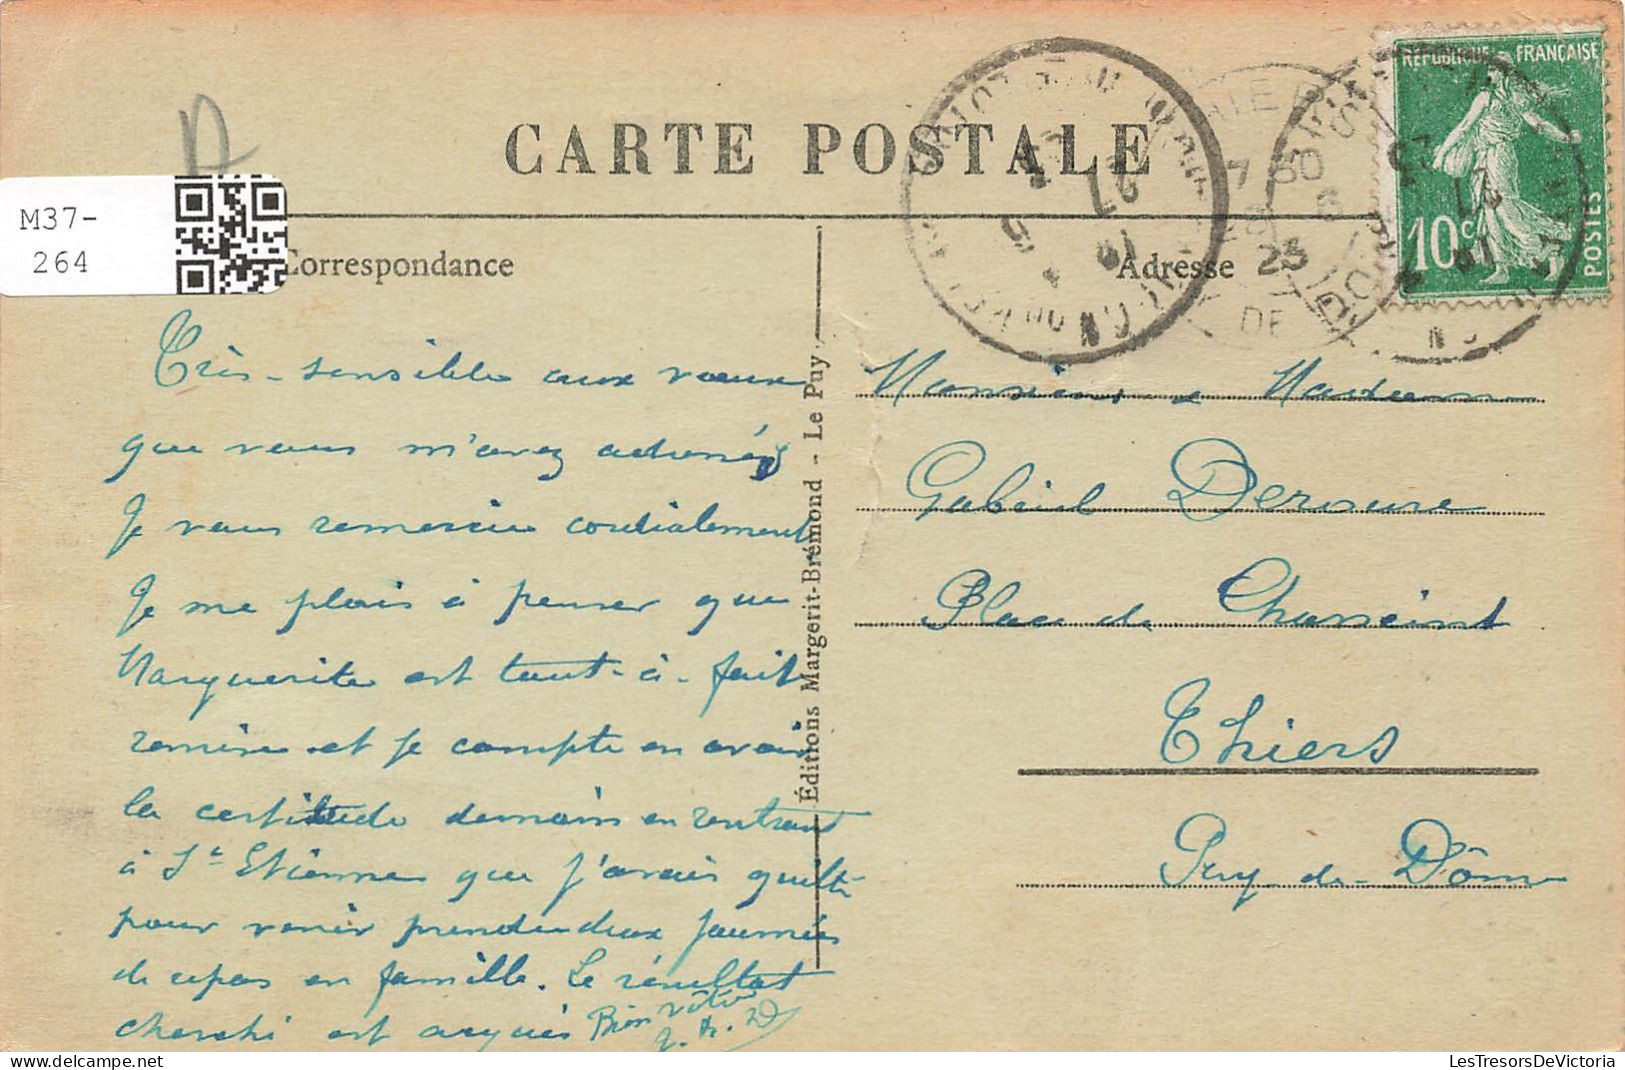 CARTE POSTALE
M37-
264
Correspondance
Adresse
RÉPUBLIQUE FRANÇAISE
10c
POSTES
THIERS
7 30
25
DE
Éditions Margerit-Brémond - Le Puy
Très-sensible aux vœux
que vous m'avez adressés
Je vous remercie cordialement
Je me plais à penser que
Marguerite est tout-à-fait
remise et je compte en avoir
la certitude demain en rentrant
à St Etienne que j'avais quitté
pour venir prendre deux journées
de repos en famille. Le résultat
cherché est acquis Bien vôtre
Monsieur & Madame
Gabriel Deroure
Place de Chassaint
Thiers
Puy-de-Dôme
LesTresorsDeVictoria
delcampe.net